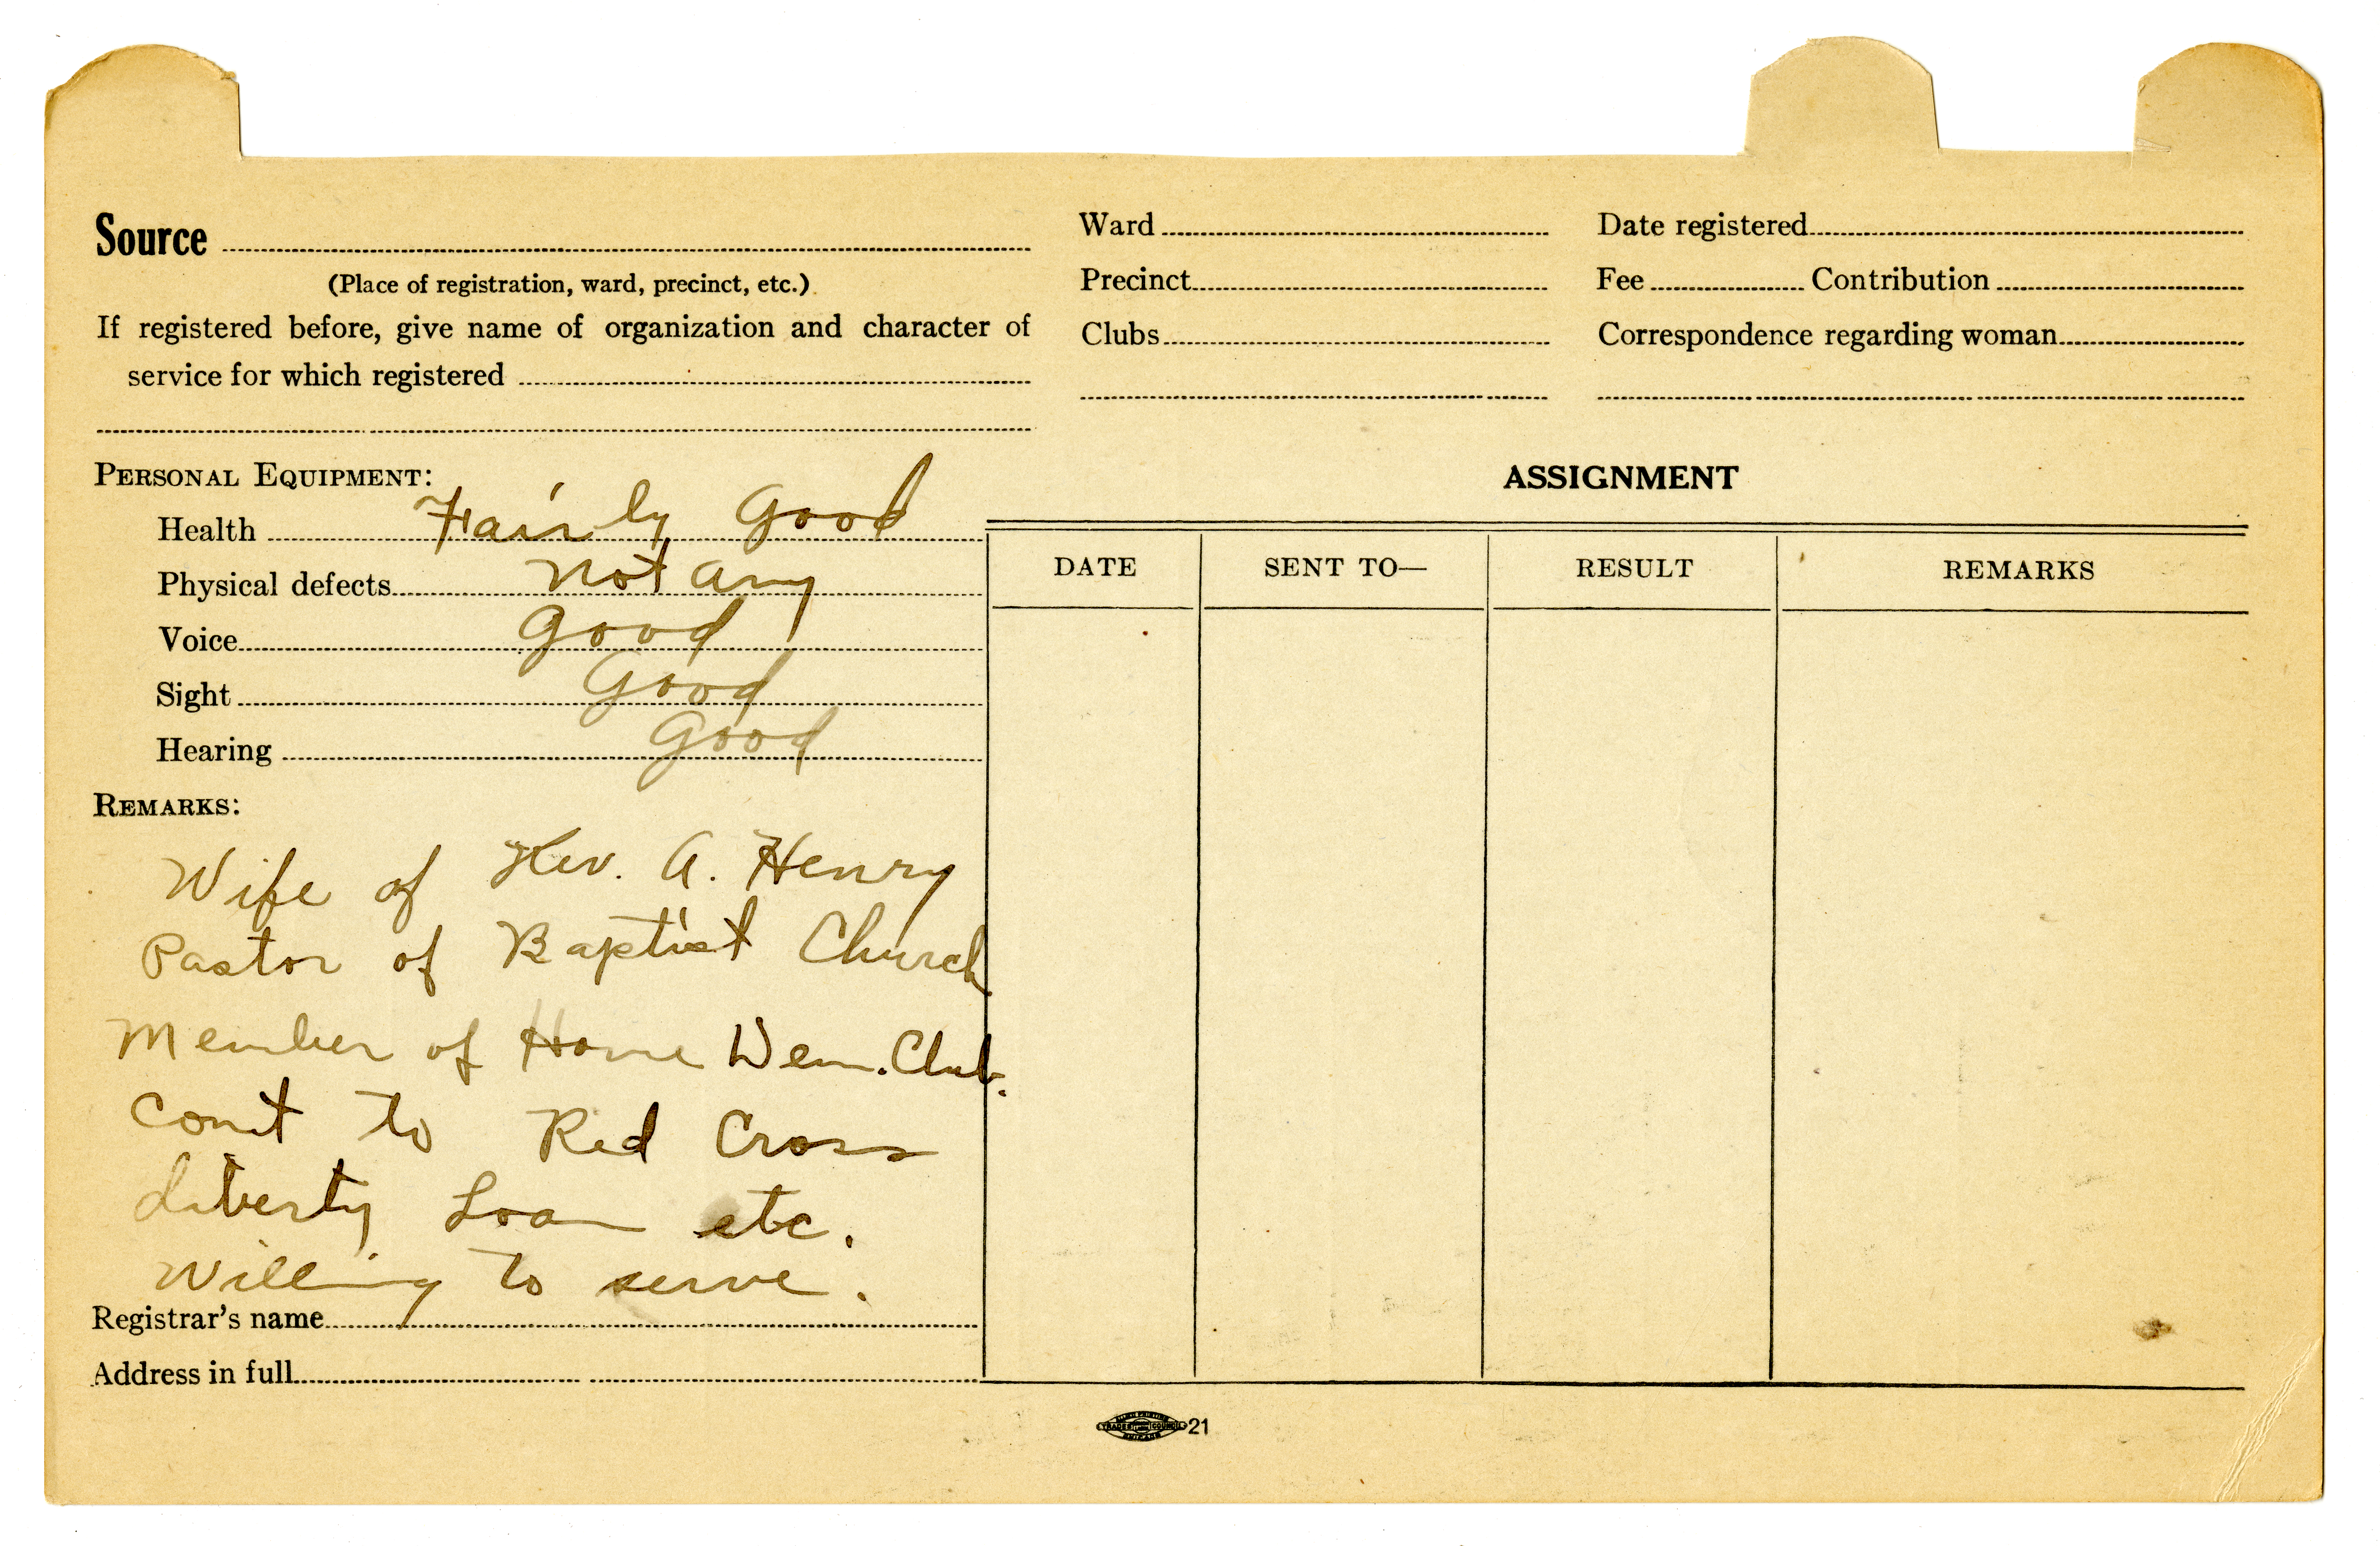 Source
(Place of registration, ward, precinct, etc.)
If registered before, give name of organization and character of
service for which registered
Ward
Precinct
Clubs
Date registered
Fee Contribution
Correspondence regarding woman
PERSONAL EQUIPMENT:
Health Fairly Good
Physical defects not any
Voice Good
Sight Good
Hearing Good
REMARKS:
Wife of Rev. A. Henry
Pastor of Baptist Church
Member of Home Dem. Club.
Cont to Red Cross
Liberty Loan etc.
Willing to serve.
Registrar's name
Address in full
ASSIGNMENT
DATE SENT TO— RESULT REMARKS
TRADES COUNCIL 21